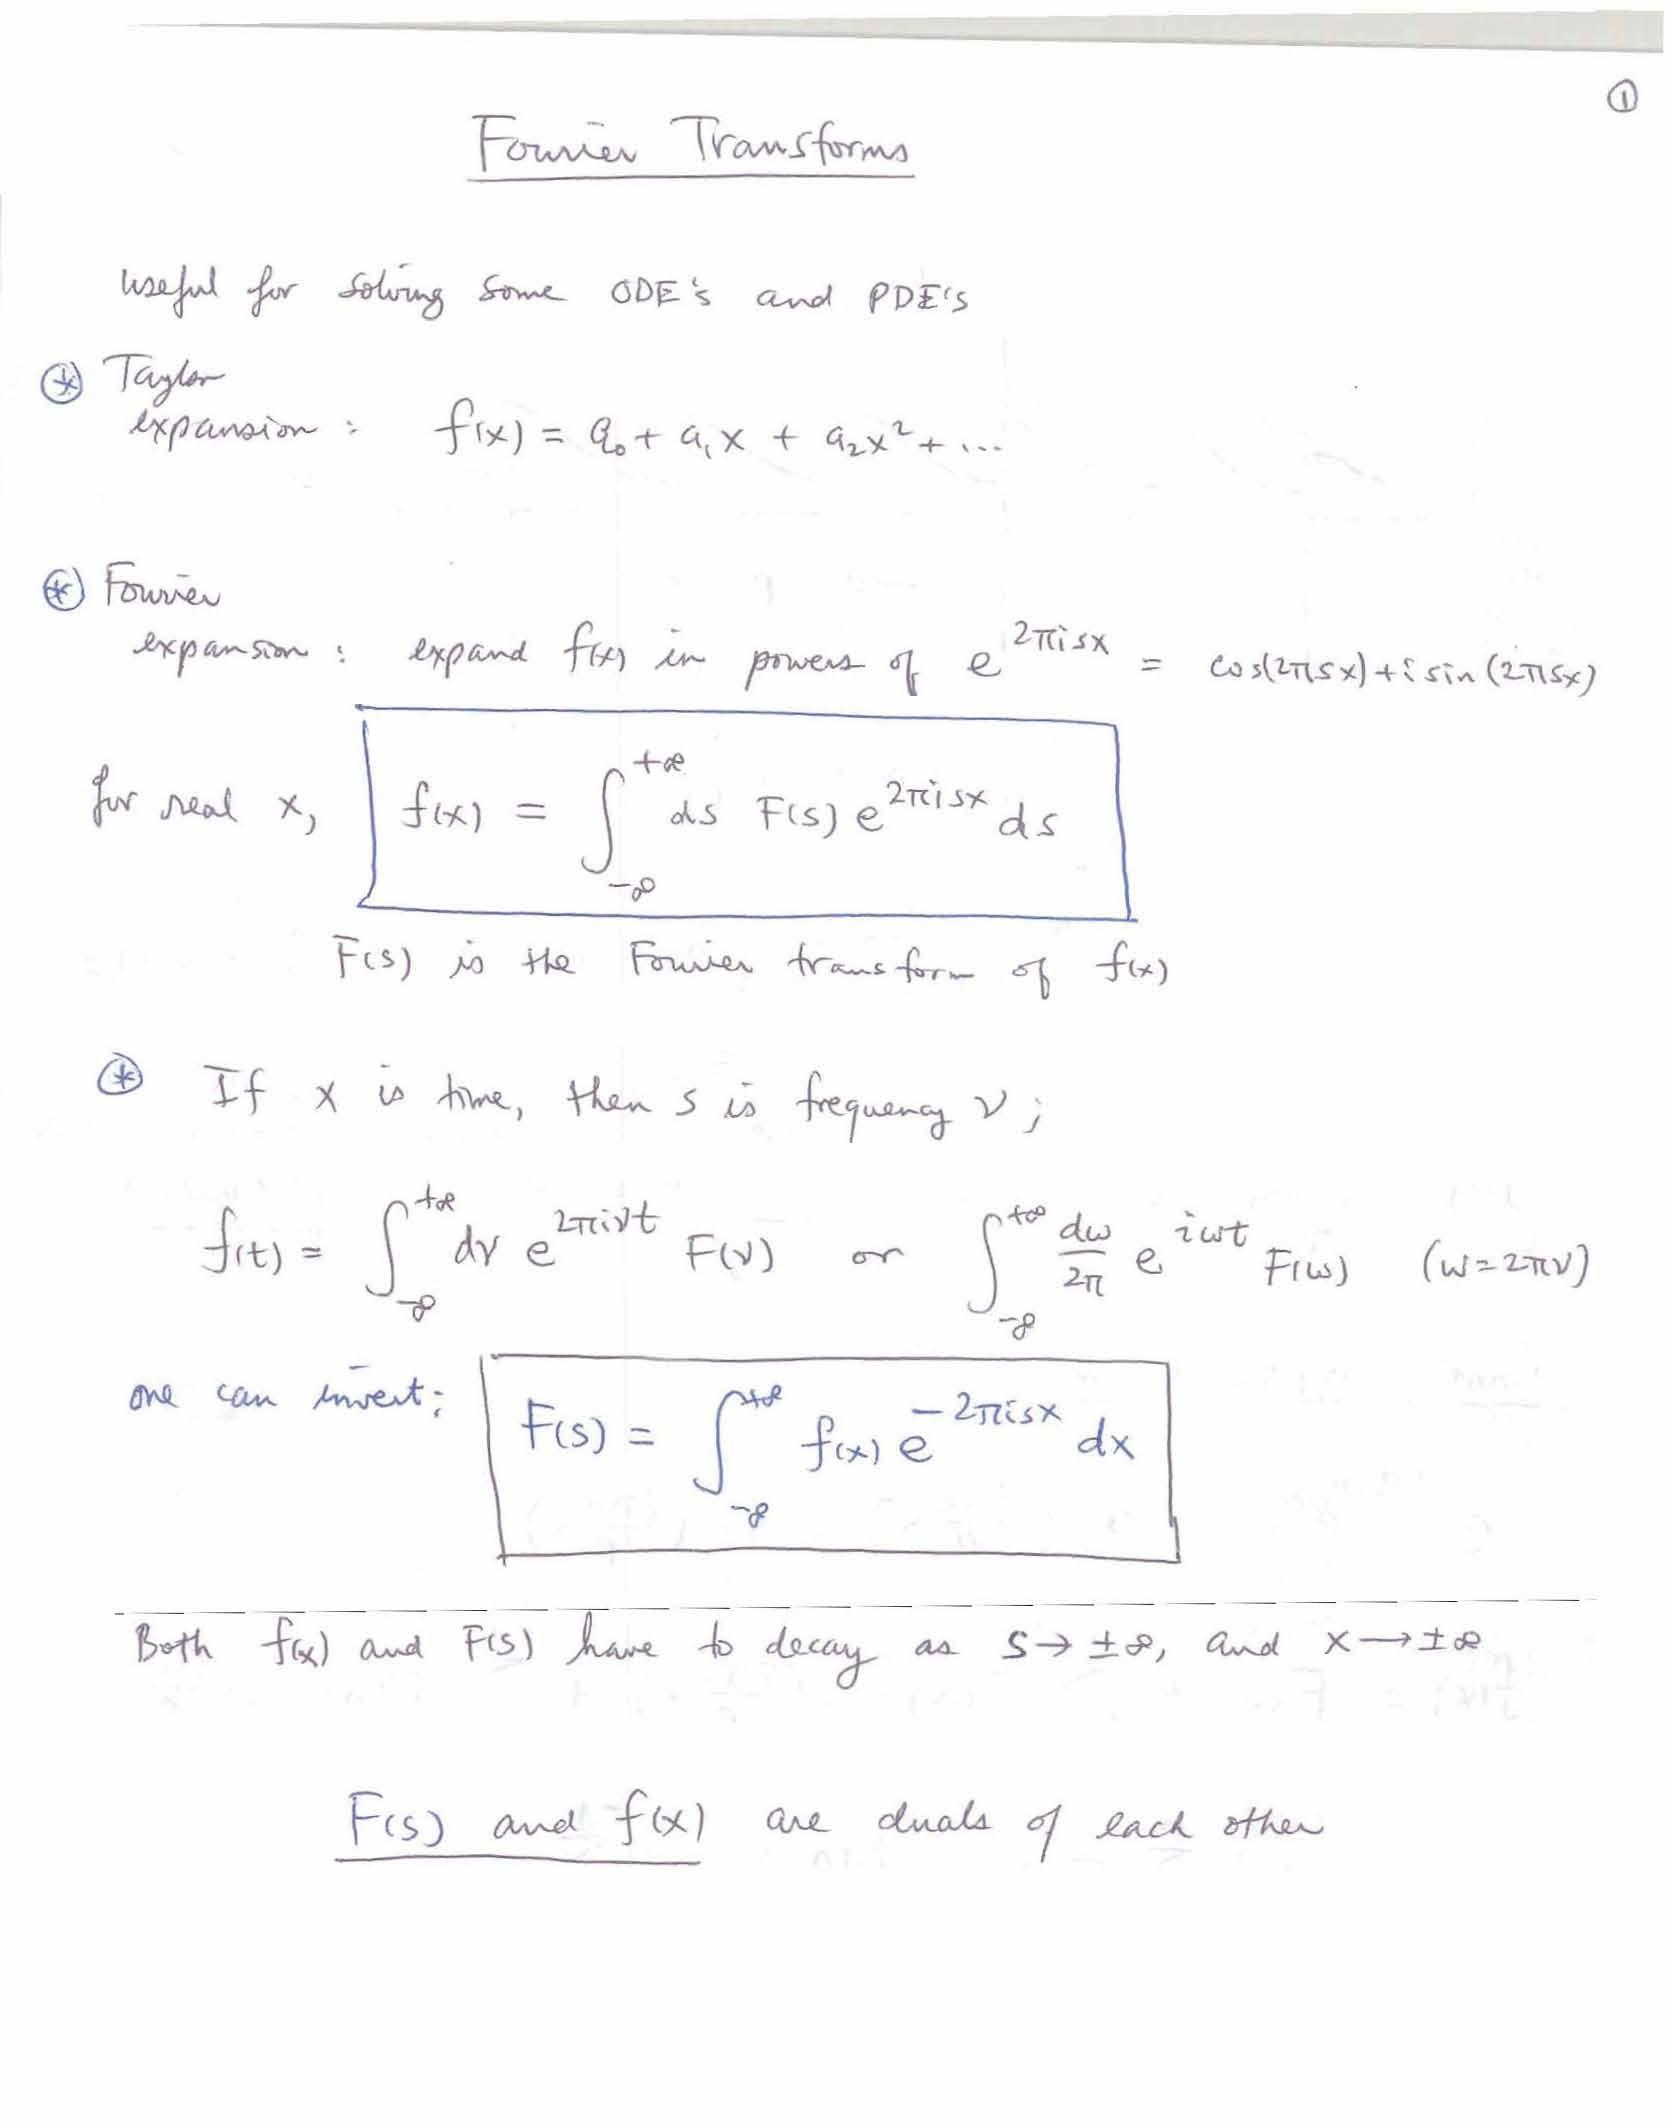 ①
Fourier Transforms
useful for solving some ODE's and PDE's
⊛ Taylor
expansion : f(x) = a₀ + a₁x + a₂x² + ...
⊛ Fourier
expansion : expand f(x) in powers of e^{2πisx} = cos(2πsx) + i sin(2πsx)
for real x, f(x) = ∫_{-∞}^{+∞} ds F(s) e^{2πisx} ds
F(s) is the Fourier transform of f(x)
⊛ If x is time, then s is frequency ν ;
f(t) = ∫_{-∞}^{+∞} dν e^{2πiνt} F(ν) or ∫_{-∞}^{+∞} dω/2π e^{iωt} F(ω) (ω = 2πν)
one can invert : F(s) = ∫_{-∞}^{+∞} f(x) e^{-2πisx} dx
Both f(x) and F(s) have to decay as s → ±∞, and x → ±∞
F(s) and f(x) are duals of each other